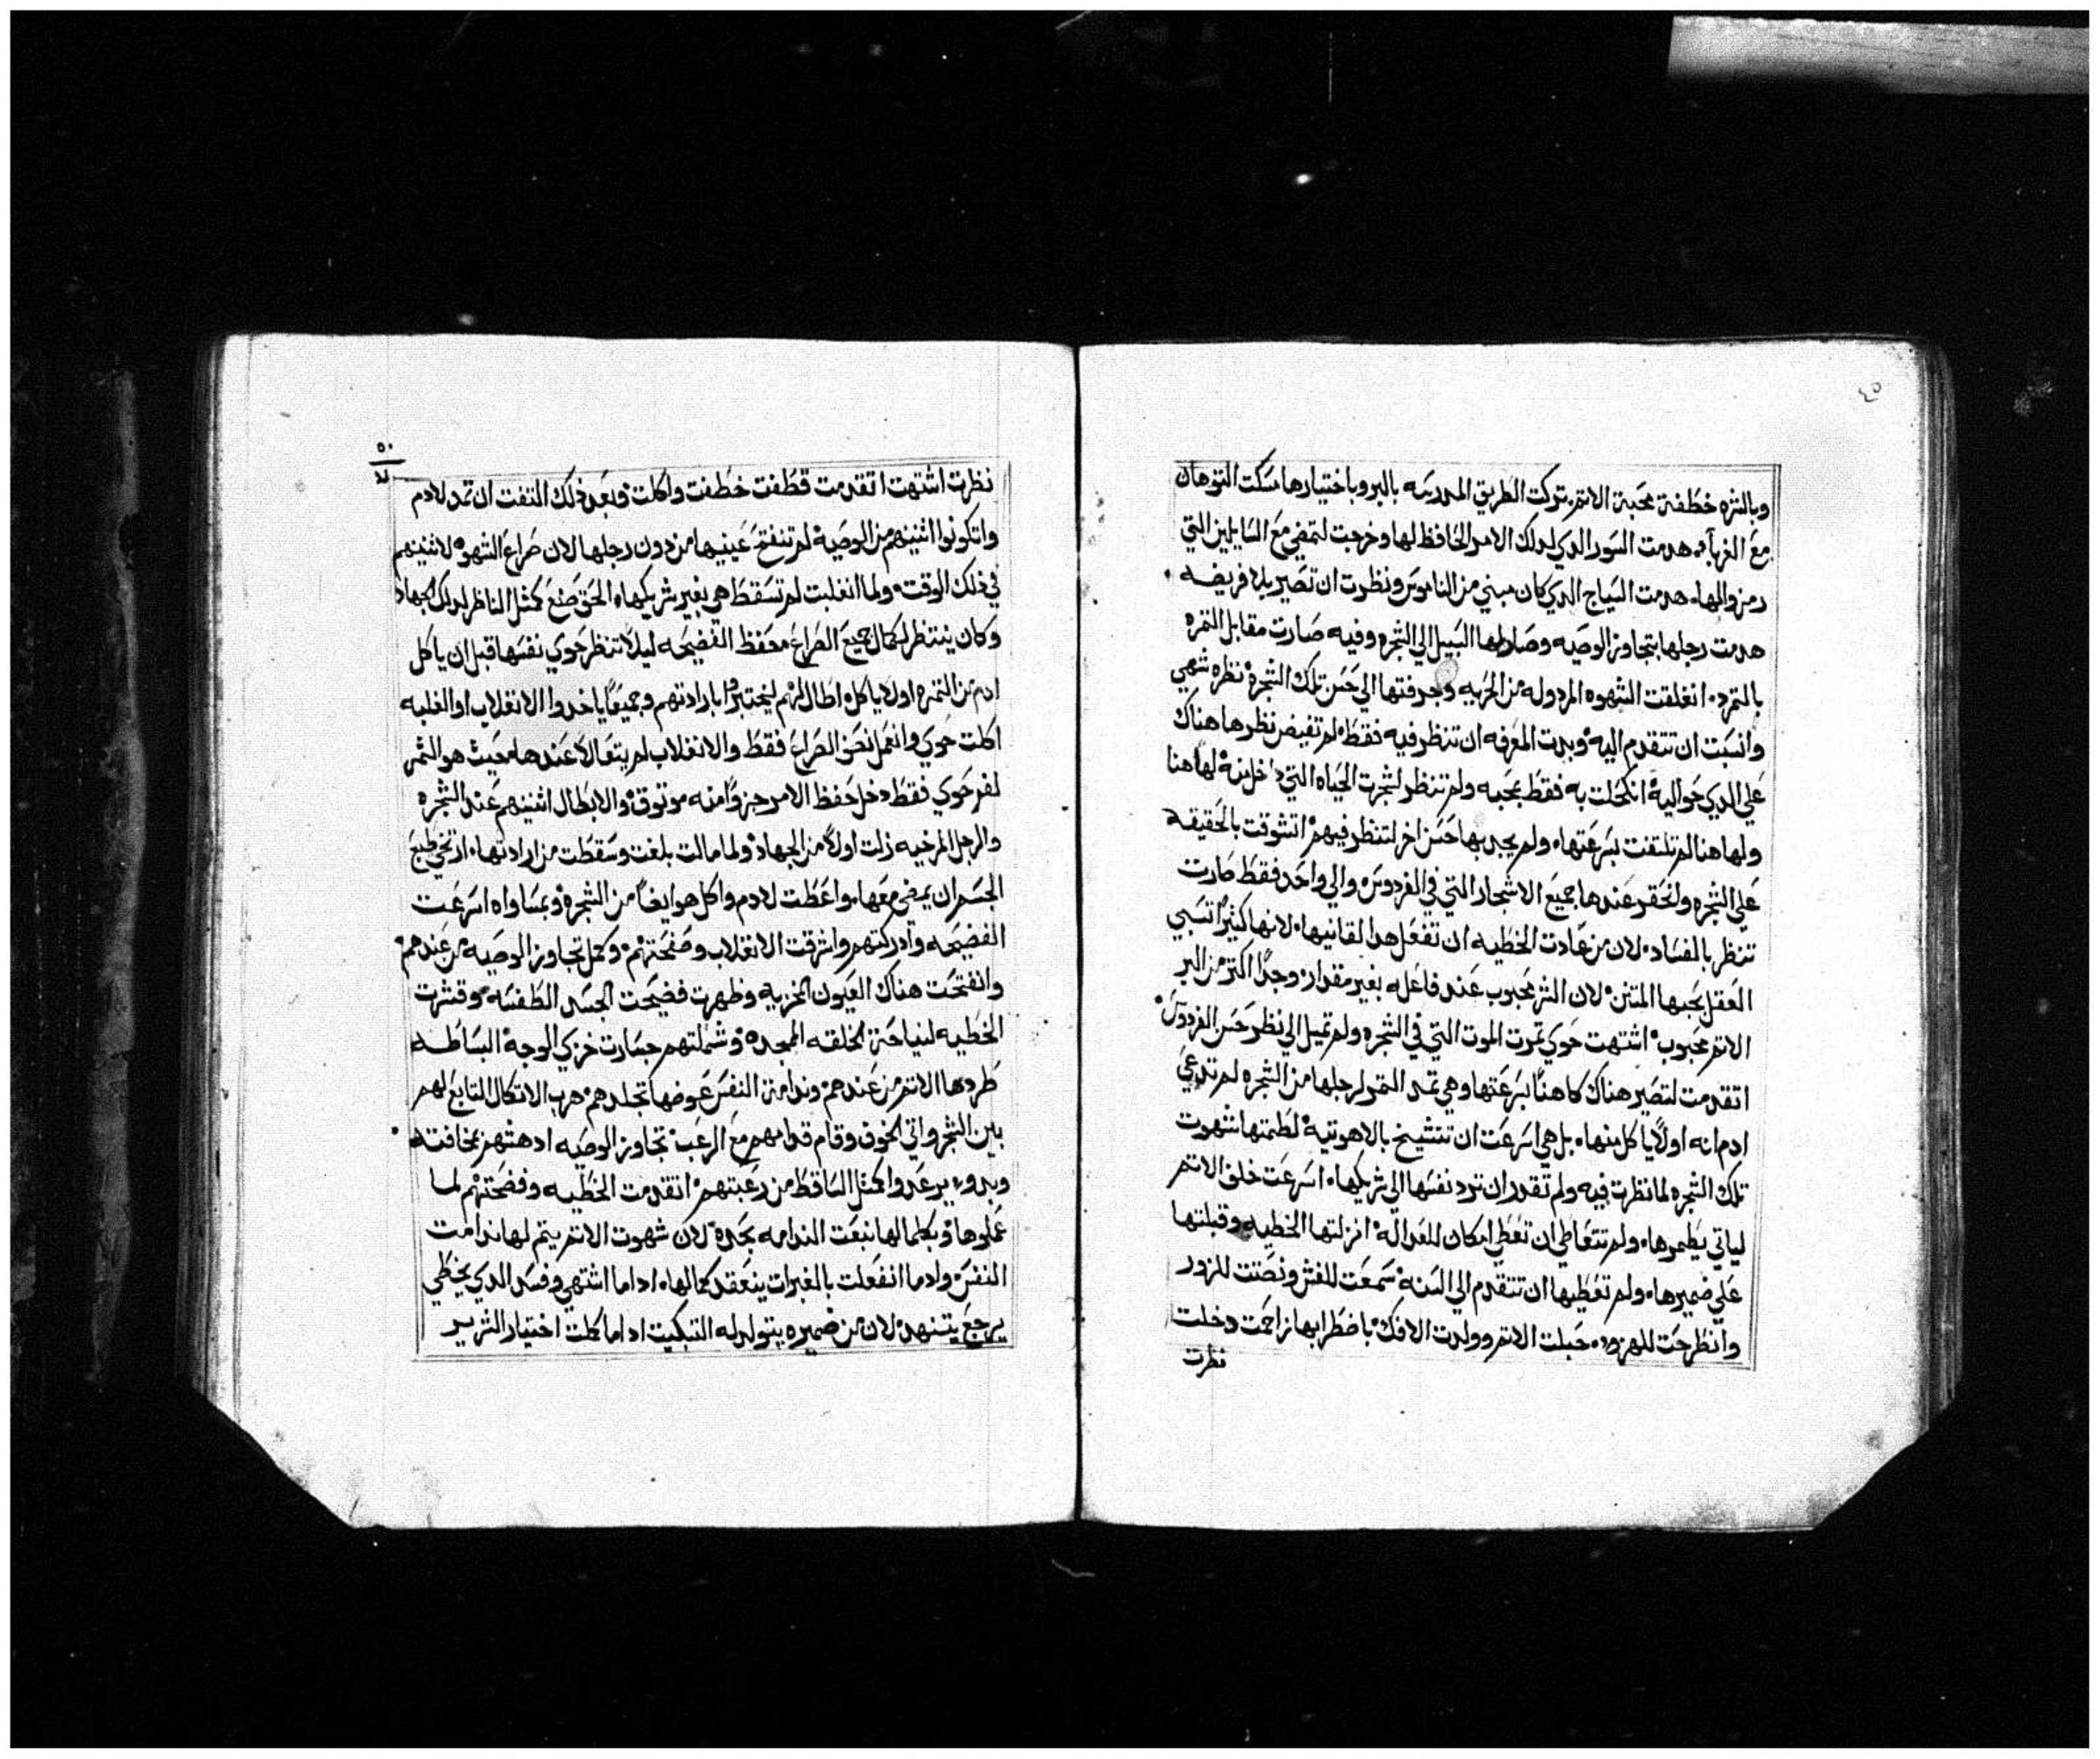 ٤٥
وبالشره خطفته محبة الاتم تركت الطريق المدرسه بالبر وباختيارها مسكت التوهان
مع الغربآء هدمت السور الدي لدلك الامر الحافظ لها وخرجت لتمضي مع السايلين التي
رمزوالها هدمت السياج الدي كان مبني من الناموس ونظرت ان تصير بلا فريضه
هدمت رجلها بتجاوز الوصيه وصار لها السبيل الي الشجره وفيه صارت مقابل التمره
بالتمرد انغلقت الشهوه المردوله من الحريه وجدفتها الي حسن تلك الشجرة نظره شهي
وانسبت ان تتقدم اليه وبدت المعرفه ان تنظر فيه فقط لم تفيض نظرها هناك
علي الدي حواليه انكحلت به فقط بمحبه ولم تنظر لشجرت الحياه التي داخل منه لهاهنا
ولهاهنا لم تلتفت بسرعتها ولم يجد بها حسن اخر لتنظر فيهم اتشوقت بالحقيقه
علي الشجره ولحقر عندها جميع الاشجار التي في الفردوس والي واحد فقط صارت
تنظر بالفساد لان من عادت الخطيه ان تفعل هدا لقانيها لانها كثيرًا تسبي
العقل بحبها المتنن لان الشر محبوب عند فاعله بغير مقدار وجدًا اكتر من البر
الاتم محبوب اشتهت حوي تمرت الموت التي في الشجره ولم تميل الي نظر حسن الفردوس
اتقدمت لتصير هناك كاهنًا بسرعتها وهي تمد التمر لرجلها من الشجره لم تدعي
ادم انه اولاً ياكل منها بل هي اسرعت ان تتشيخ بالاهوتيه لطمتها شهوت
تلك الشجره لما نظرت فيه ولم تقدر ان ترد نفسها الي شريكها اسرعت خلف الاتم
لياتي يطمرها ولم تتعاطي ان تعطي امكان للعداله انزلتها الخطيه وقبلتها
علي ضميرها ولم تعطيها ان تتقدم الي السنه سمعت للغش ونصتت للزور
وانطرحت للهزوء حبلت الاتم وولدت الافك باضطرابها زاحمت دخلت
نظرت
٥٠
نظرت اشتهت اتقدمت قطفت خطفت واكلت وبعد دلك التفت ان تمد لادم
واتكونوا اثنينهم من الوصيه لم تنفتح عينيها من دون رجلها لان صراع الشهوه لاثنينهم
في دلك الوقت ولما انغلبت لم تسقط هي بغير شريكها الحق صنع كمثل الناظر لدلك الجهاد
وكان ينتظر لكمال جميع الصراع محفظ الفضيحه ليلا تنظر حوي نفسها قبل ان ياكل
ادم من التمره اولا ياكل اطال لهم ليختبروا بارادتهم وجميعًا ياخدوا الانغلاب او الغلبه
اكلت حوي وانعمل نصف الصراع فقط والانغلاب لم يتعالا عندها بحيث هو التمر
لفم حوي فقط دخل حفظ الامر جزوًا منه موتوق والابطال اثنينهم عند الشجره
والرجل المرخيه زلت اولاً من الجهاد ولما مالت بلغت وسقطت من ارادتها ارتخي طبع
الجسم ان يمضي معها واعطت لادم واكل هو ايضًا من الشجره وبمساواه اسرعت
الفضيحه وادركتهم واشرقت الانغلاب وصفحتهم وكمل تجاوز الوصيه من عندهم
وانفتحت هناك العيون المخزيه وظهرت فضيحت الجسد الطفسه وقشرت
الخطيه لنياحة الخلقه الممجده وشملتهم جسارت خزي الوجه البساطه
طردها الاتم من عندهم وندامة النفس عوضها تجلدهم هرب الاتكال التابع لهم
بين الشجر واتي الخوف وقام قدامهم مع الرعب تجاوز الوصيه ادهشهم بمخافته
وبدوء يرعدوا كمثل الساقط من رغبتهم اتقدمت الخطيه وفضحتهم لما
عملوها وبكمالها نبعت الندامه بحده لان شهوت الاتم يتم لها ندامت
النفس وادما انفعلت بالغيرات ينعقد كمالها ادا ما اشتهي وفسد الدي يخطي
يرجع يتنهد لان من ضميره يتولد له التبكيت ادا ما كملت اختيار الشرير